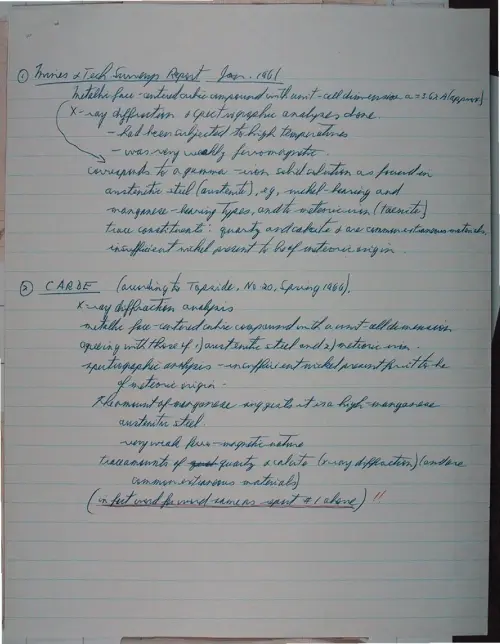 ① Mines & Tech Surveys Report Jan. 1961
Metallic face-centered cubic compound with unit-cell dimension a = 3.62 A (approx)
X-ray diffraction & spectrographic analyses done.
- had been subjected to high temperatures
- was very weakly ferromagnetic.
corresponds to a gamma-iron solid solution as found in
austenitic steel (austenite), e.g. nickel-bearing and
manganese-bearing types, and to meteoric iron (taenite)
trace constituents: quartz and calcite & are common terrestrial materials.
insufficient nickel present to be of meteoric origin.
② CARDE (according to Topside, No 20, Spring 1966).
X-ray diffraction analysis
metallic face-centered cubic compound with a unit-cell dimension
agreeing with those of 1) austenitic steel and 2) meteoric iron.
spectrographic analyses - insufficient nickel present for it to be
of meteoric origin.
The amount of manganese suggests it is a high-manganese
austenitic steel.
very weak ferro-magnetic nature
trace amounts of quartz & calcite (x-ray diffraction) (and are
common materials)
(in fact word for word same as report #1 above) !!